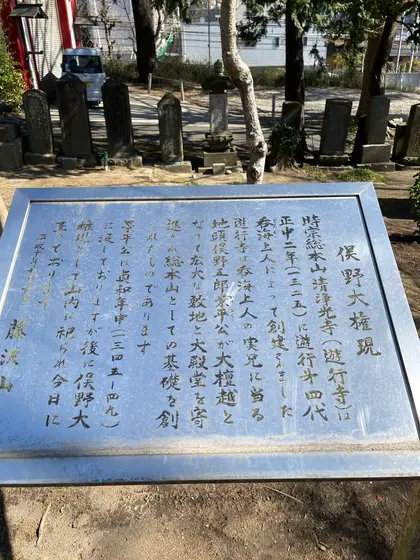 俣野大権現
時宗総本山清浄光寺（遊行寺）は
正中二年（一三二五）に遊行第四代
呑海上人によって創建されました
遊行寺は呑海上人の実兄に当る
地頭俣野五郎景平公が大檀越と
なって広大な敷地と大殿堂を寄
進され総本山としての基礎を創
られたものであります
景平公は貞和年中（一三四五－四九）
に没しておりますが後に俣野大
権現として山内に祀られ今日に
至っております
藤沢山